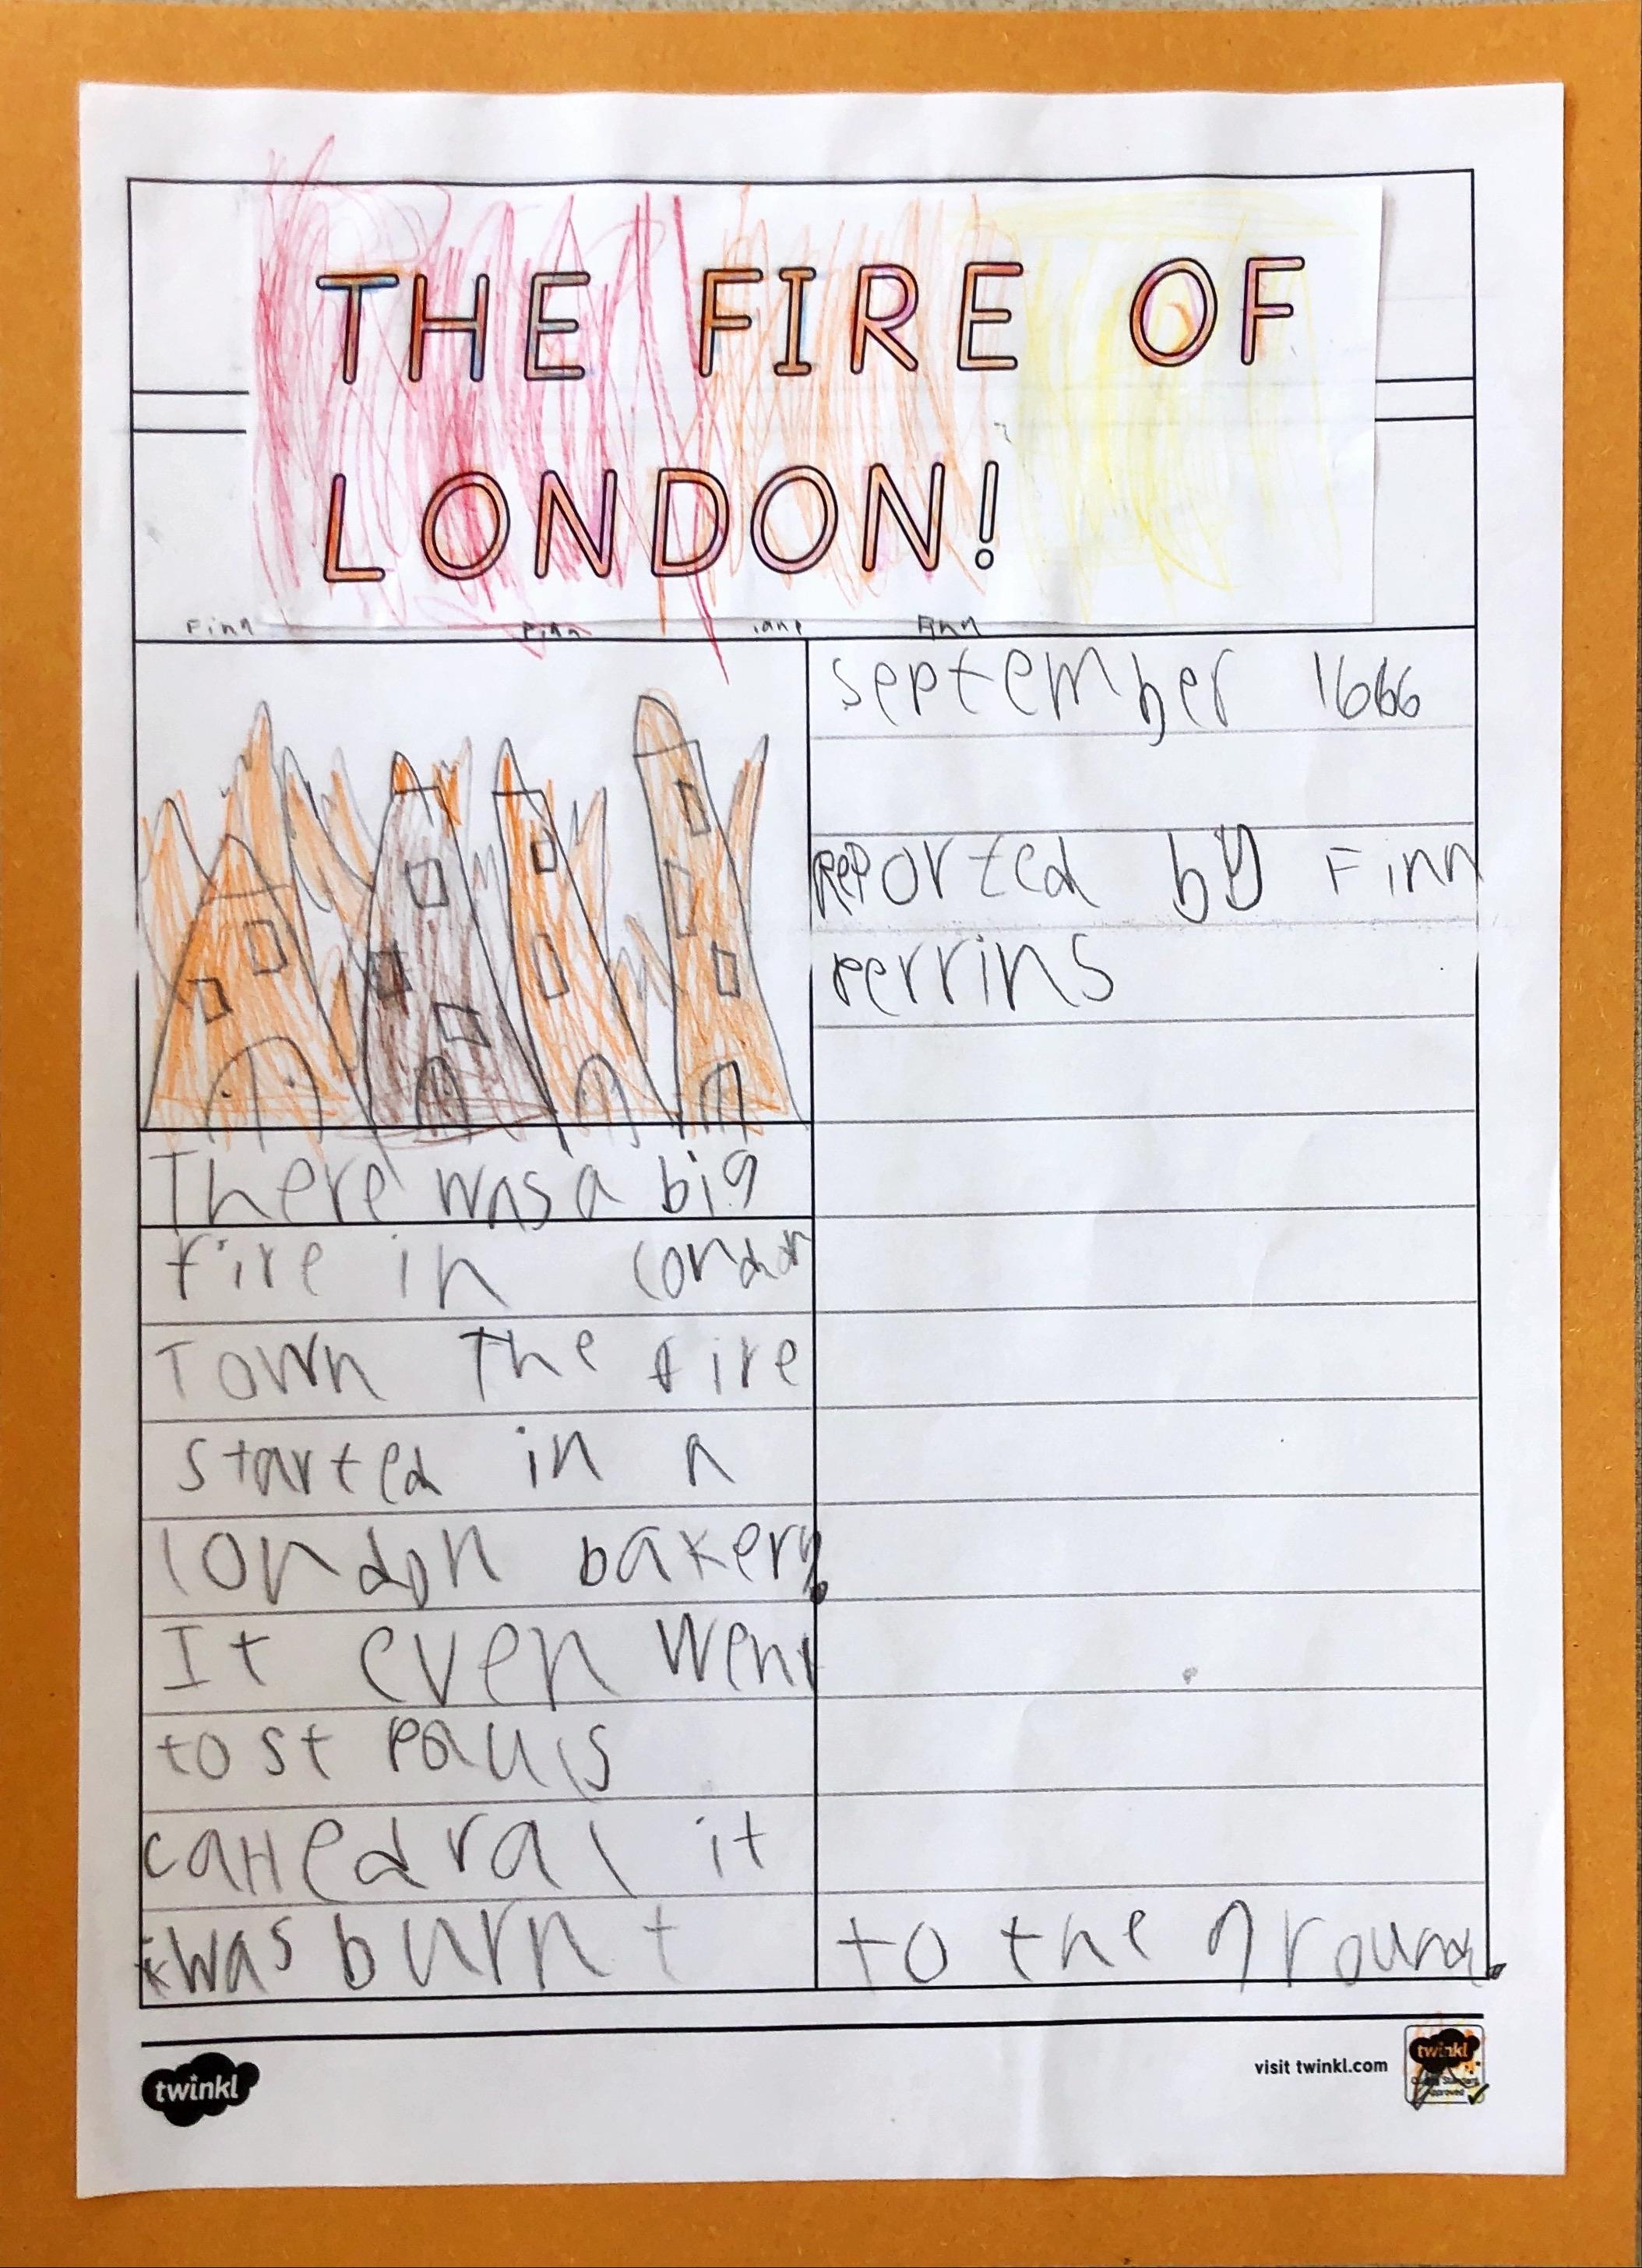 THE FIRE OF
LONDON!
Finn Finn Finn
September 1666
Reported by Finn
Perrins
There was a big
fire in london
Town The fire
started in a
london bakery.
It even went
to st Pauls
catHedral it
was burnt to the ground.
twinkl
visit twinkl.com
twinkl
Quality Standard
Approved